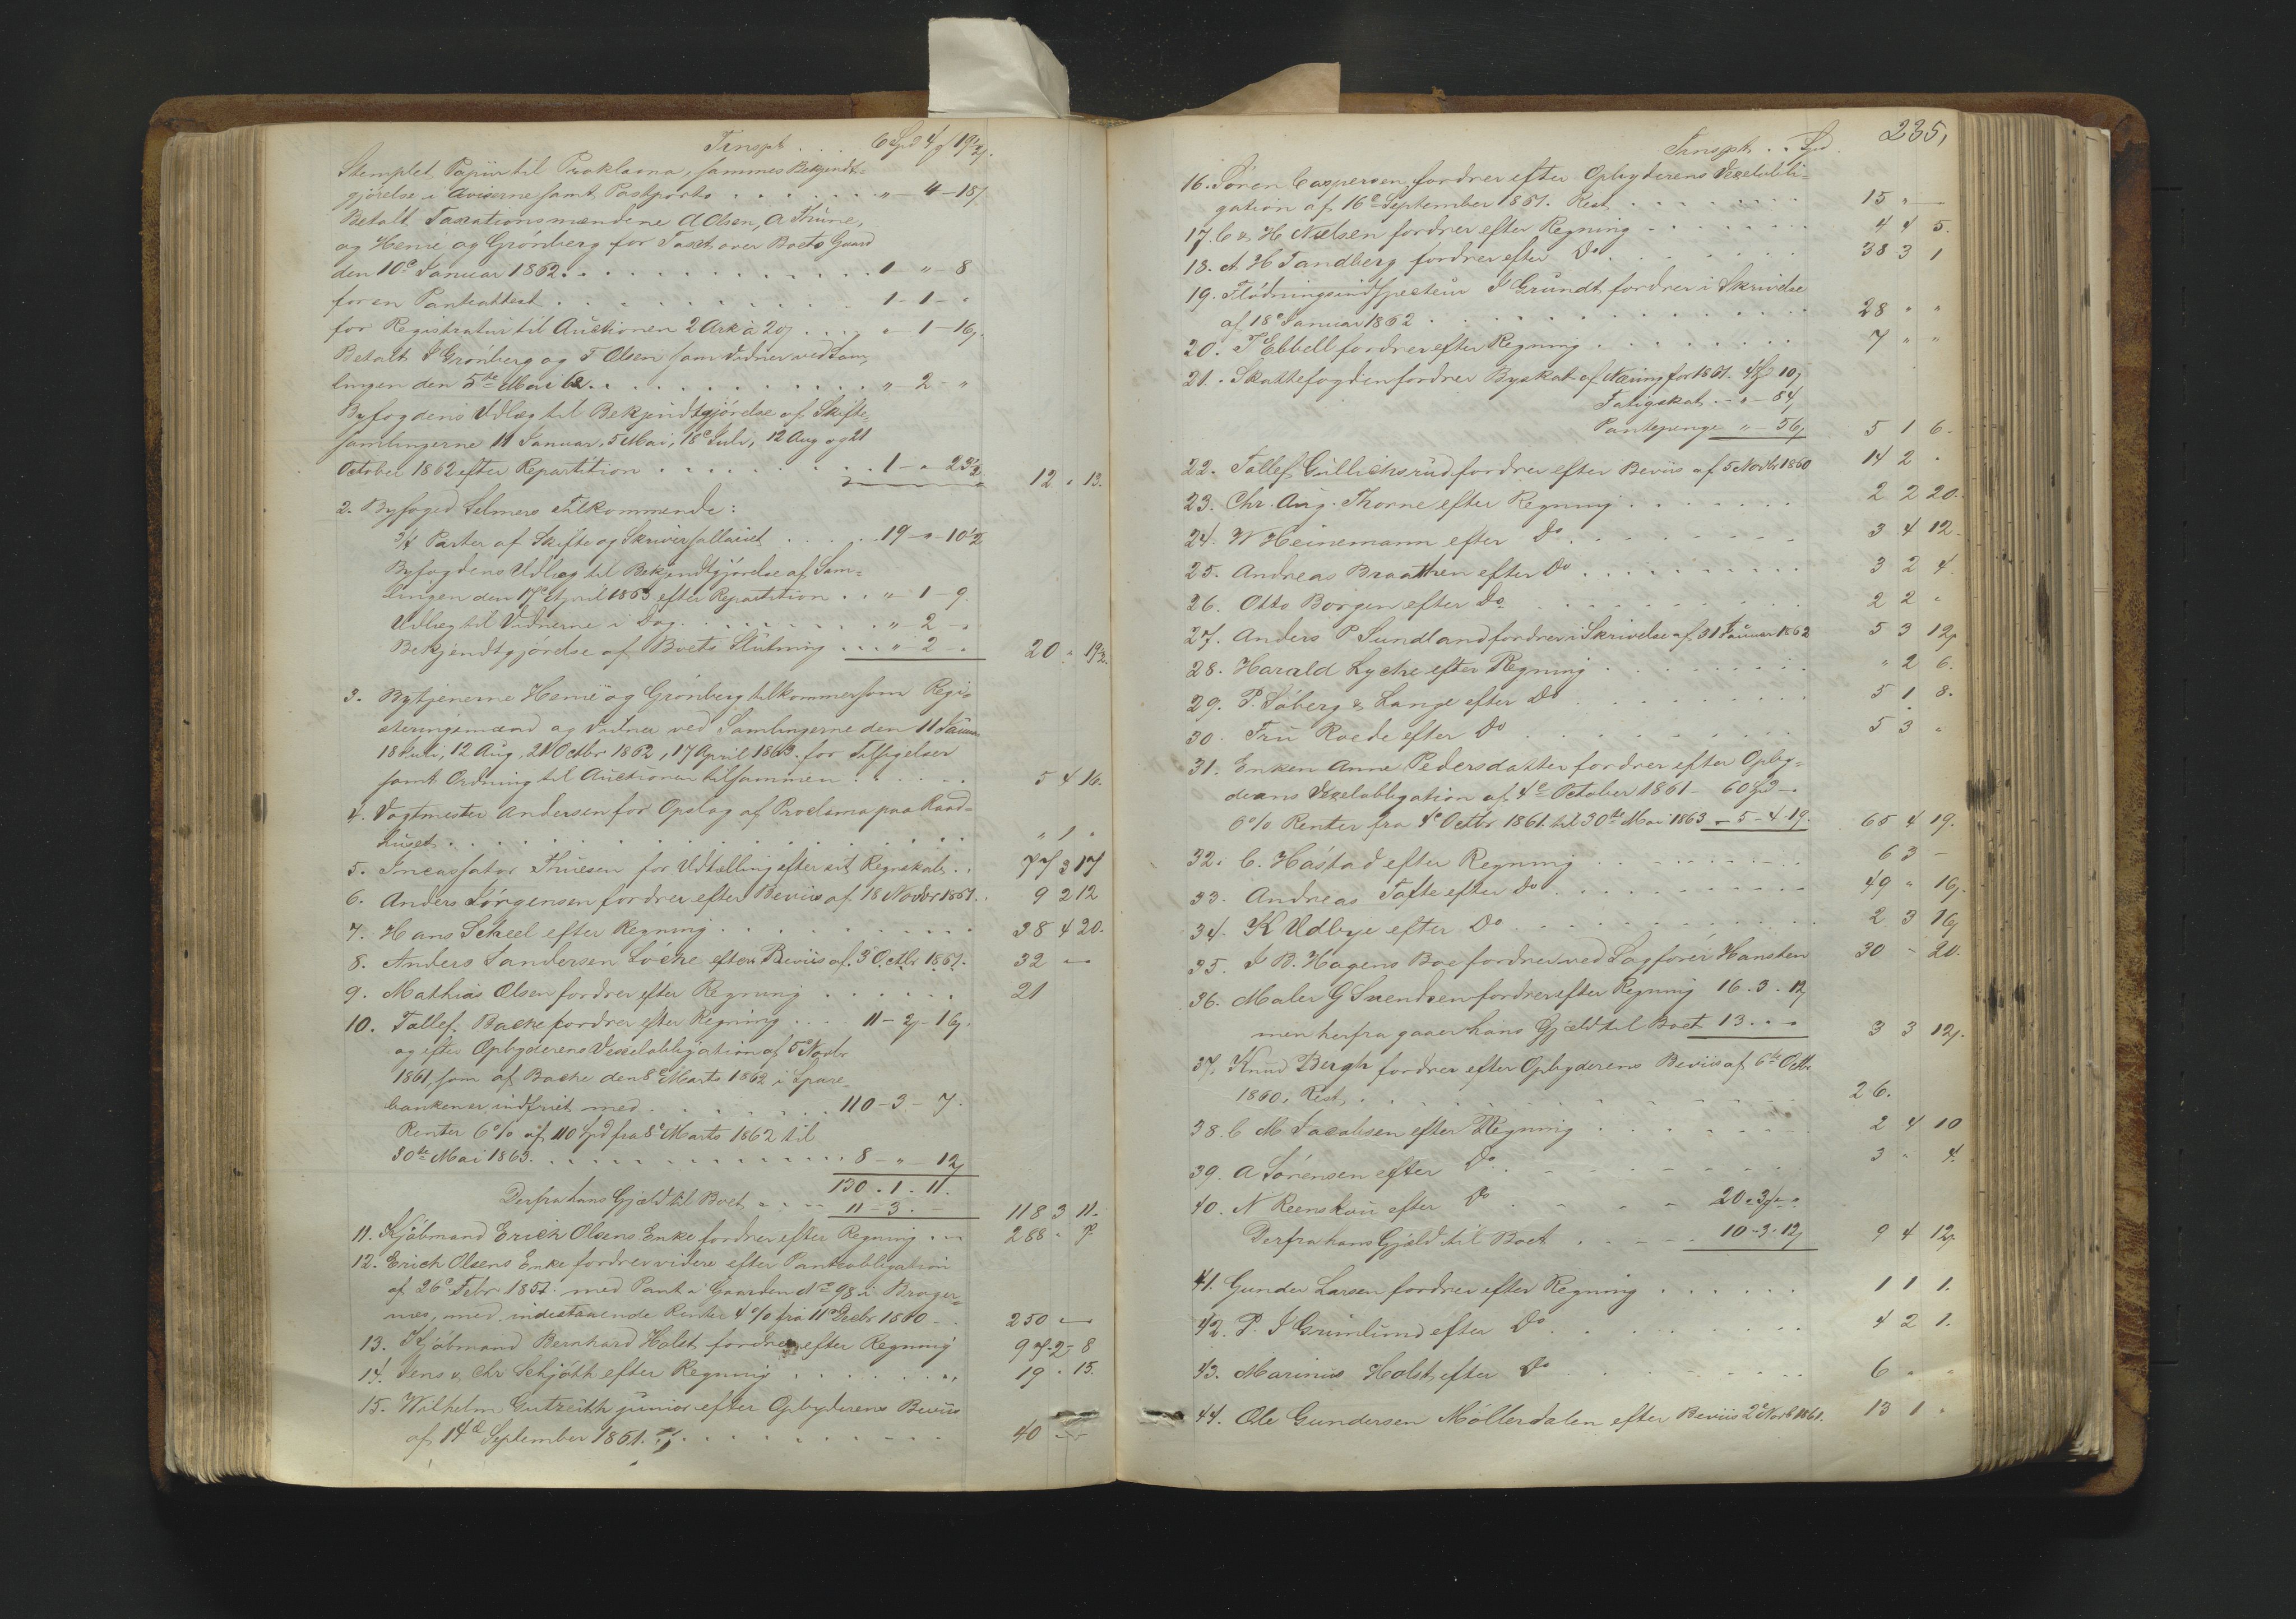 Trnspt. . . 6 Spd 4 ℔ 19½ ſ.
Stemplet Papiir til Proklama, sammes Bekjendt-
gjörelse i Aviserne samt Postporto . . . . . . . „ - 4 - 18ſ
Betalt Taxationsmændene A Olsen, A Thüne,
og Henie og Grönberg for Taxt over Boets Gaard
den 10e Januar 1862. . . . . . . . . . . 1 - „ - 8
for en Pantattest . . . . . . . . . . 1 - 1 - „
for Registratur til Auctionen 2 Ark à 20ſ . . . . „ - 1 - 16ſ.
Betalt J Grönberg og T Olsen som Vidner ved Sam-
lingen den 5te Mai 62. . . . . . . . . . „ - 2 - „
Byfogdens Udlæg til Bekjendtgjörelse af Skifte-
samlingerne 11 Januar, 5 Mai, 18e Juli, 12 Aug og 21
October 1862 efter Repartition . . . . . . . . 1 - „ 23½ 12 „ 13.
2. Byfoged Selmers Tilkommende:
3/4 Parter af Skifte og Skriversallairet . . . . . 19 - „ - 10½
Byfogdens Udlæg til Bekjendtgjörelse af Sam-
lingen den 17e April 1863 efter Repartition . . „ - 1 - 9.
Udlæg til Vidnerne i Dag. . . . . . . . „ - 2 - „
Bekjendtgjörelse af Boets Slutning . . . „ - 2 - „ 20 „ 19½.
3. Bytjenerne Henie og Grönberg tilkommer som Regi-
steringsmænd og Vidner ved Samlingerne den 11 Januar
18 Juli, 12 Aug, 21 Octbr 1862, 17 April 1863. for Tilsigelser
samt Ordning til Auctionen tilsammen . . . . . . 5 4 16.
4. Vagtmester Andersen for Opslag af Proclama paa Raad-
huset . . . . . . . . . . . . . . . „ 1 „
5. Incassator Thuesen for Udtælling efter sit Regnskab . . 77 3 17
6. Anders Jörgensen fordrer efter Beviis af 18 Novbr 1861. . 9 2 12
7. Hans Scheel efter Regning . . . . . . . . . . 38 4 20.
8. Anders Sandersen Löcke efter Beviis af 3 Octbr 1861. 32 -
9. Mathias Olsen fordrer efter Regning . . . . . . 21
10. Tollef. Backe fordrer efter Regning . . . 11 - 2 - 16ſ.
og efter Opbyderens Vexelobligation af 5 Novbr
1861, som af Backe den 8e Marts 1862 i Spare-
banken er indfriet med . . . . . . . . 110 - 3 - 7.
Renter 6% af 110 Spd fra 8e Marts 1862 til
30te Mai 1863. . . . . . . . . . . . . 8 - „ - 12ſ
130 . 1 . 11.
Derfra hans Gjæld til Boet . . . 11 - 3 . - 118 3 11.
11. Kjöbmand Erich Olsens Enke fordrer efter Regning . . . 288 „ 7.
12. Erich Olsens Enke fordrer videre efter Pantobligation
af 26e Febr 1857. med Pant i Gaarden No 98 i Brager-
nes, med indestaaende Renter 4% fra 11e Decbr 1860 . . 250 -
13. Kjöbmand Bernhard Holst fordrer efter Regning 97 - 2 - 8
14. Jens & Chr Schjöth efter Regning . . . . . . . . 19 . 15.
15. Wilhelm Gutzeith junior efter Opbyderens Beviis
af 14de September 1861. . . . . . . . . . . 40 -
235,
Trnspt . . Spd.
16. Sören Caspersen, fordrer efter Opbyderens Vexelobli-
gation af 16e September 1861. Rest . . . . . . . 15 „ -
17. C & H Nielsen fordrer efter Regning . . . . . . . 4 4 5.
18. A H Tandberg fordrer efter Do . . . . . . . 38 3 1
19. Flödningsindspecteur J Grundt fordrer i Skrivelse
af 18e Januar 1862 . . . . . . . . . . . . 28 „ „
20. T Ebbell fordrer efter Regning . . . . . . . . 7 „ „
21. Skattefogden fordrer Byskat af Næring for 1861. 4 Spd 10ſ
Fatigskat. - „ - 84ſ
Pantepenge „ - 56ſ 5 1 6.
22. Tollef Gullichsrud fordrer efter Beviis af 5 Novbr 1860 14 2 „
23. Chr. Aug. Thorne efter Regning . . . . . . . 2 2 20.
24. W Heinemann efter Do . . . . . . . . . 3 4 12.
25. Andreas Braathen efter Do . . . . . . . . . 3 2 4.
26. Otto Borgen efter Do . . . . . . . . . . 2 2 „
27. Anders P Sundland fordrer i Skrivelse af 31te Januar 1862 5 3 12ſ
28. Harald Lyche efter Regning . . . . . . . . „ 2 6.
29. P. Söberg & Lange efter Do . . . . . . . . . 5 1 8.
30. Fru Roede efter Do . . . . . . . . . . 5 3 „
31. Enken Anne Pedersdatter fordrer efter Opby-
derens Vexelobligation af 4e October 1861 - 60 Spd - „
6% Renter fra 4e Octbr 1861. til 30te Mai 1863 - 5 - 4 . 19. 65 4 19.
32. C. Hastad efter Regning . . . . . . . . 6 3 -
33. Andreas Tofte efter Do . . . . . . . . . . 49 „ 16ſ.
34. K Udbye efter Do . . . . . . . . . . . 2 3 16ſ
35. J B. Hagens Boe fordrer ved Sagförer Hansteen 30 - 20.
36. Maler G Svendsen fordrer efter Regning 16 . 3 . 12ſ
men herfra gaaer hans Gjæld til Boet 13. . „ 3 3 12ſ.
37. Knud Bergh fordrer efter Opbyderens Beviis af 6te Octbr
1860, Rest, . . . . . . . . . . . . . . 26.
38. C M Jacobsen efter Regning . . . . . . . 2 4 10
39. A Sörensen efter Do . . . . . . . . . 3 „ 4.
40. N Reenskou efter Do . . . . . . 20 . 3 . „
Derfra hans Gjæld til Boet . . . . . 10 - 3 . 12ſ 9 4 12ſ.
41. Gunder Larsen fordrer efter Regning . . . . . . 1 1 1.
42. P. J Grimlund efter Do . . . . . . . . 4 2 1.
43. Marinius Holst, efter Do . . . . . . . . . 6 „ „
44. Ole Gundersen Möllerdalen efter Beviis 2e Novb 1861. 13 1 „